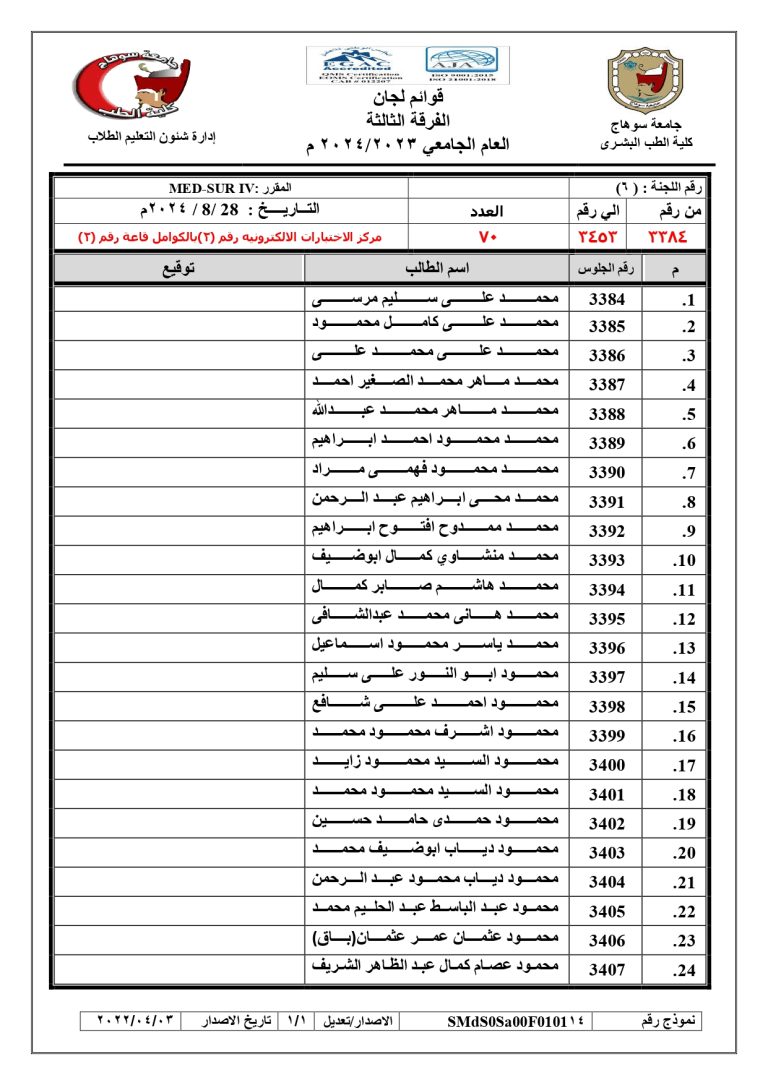 جامعة سوهاج
كلية الطب
إدارة شئون التعليم الطلاب
EGAC
Accredited
QMS Certification
EOMS Certification
CAB # 012207
AJA
ISO 9001:2015
ISO 21001:2018
قوائم لجان
الفرقة الثالثة
العام الجامعي ٢٠٢٤/٢٠٢٣ م
جامعة سوهاج
كلية الطب البشرى
رقم اللجنة : ( ٦) المقرر: MED-SUR IV
من رقم الي رقم العدد التـاريـــخ : 28 /8/ ٢٠٢٤م
٣٣٨٤ ٣٤٥٣ ٧٠ مركز الاختبارات الالكترونيه رقم (٢)بالكوامل قاعة رقم (٢)
م رقم الجلوس اسم الطالب توقيع
1. 3384 محمد على سليم مرسى
2. 3385 محمد على كامل محمود
3. 3386 محمد على محمد على
4. 3387 محمد ماهر محمد الصغير احمد
5. 3388 محمد ماهر محمد عبدالله
6. 3389 محمد محمود احمد ابراهيم
7. 3390 محمد محمود فهمى مراد
8. 3391 محمد محى ابراهيم عبد الرحمن
9. 3392 محمد ممدوح افتوح ابراهيم
10. 3393 محمد منشاوي كمال ابوضيف
11. 3394 محمد هاشم صابر كمال
12. 3395 محمد هانى محمد عبدالشافى
13. 3396 محمد ياسر محمود اسماعيل
14. 3397 محمود ابو النور على سليم
15. 3398 محمود احمد على شافع
16. 3399 محمود اشرف محمود محمد
17. 3400 محمود السيد محمود زايد
18. 3401 محمود السيد محمود محمد
19. 3402 محمود حمدى حامد حسين
20. 3403 محمود دياب ابوضيف محمد
21. 3404 محمود دياب محمود عبد الرحمن
22. 3405 محمود عبد الباسط عبد الحليم محمد
23. 3406 محمود عثمان عمر عثمان(باق)
24. 3407 محمود عصام كمال عبد الظاهر الشريف
نموذج رقم SMdS0Sa00F0101١٤ الاصدار/تعديل ١/١ تاريخ الاصدار ٢٠٢٢/٠٤/٠٣